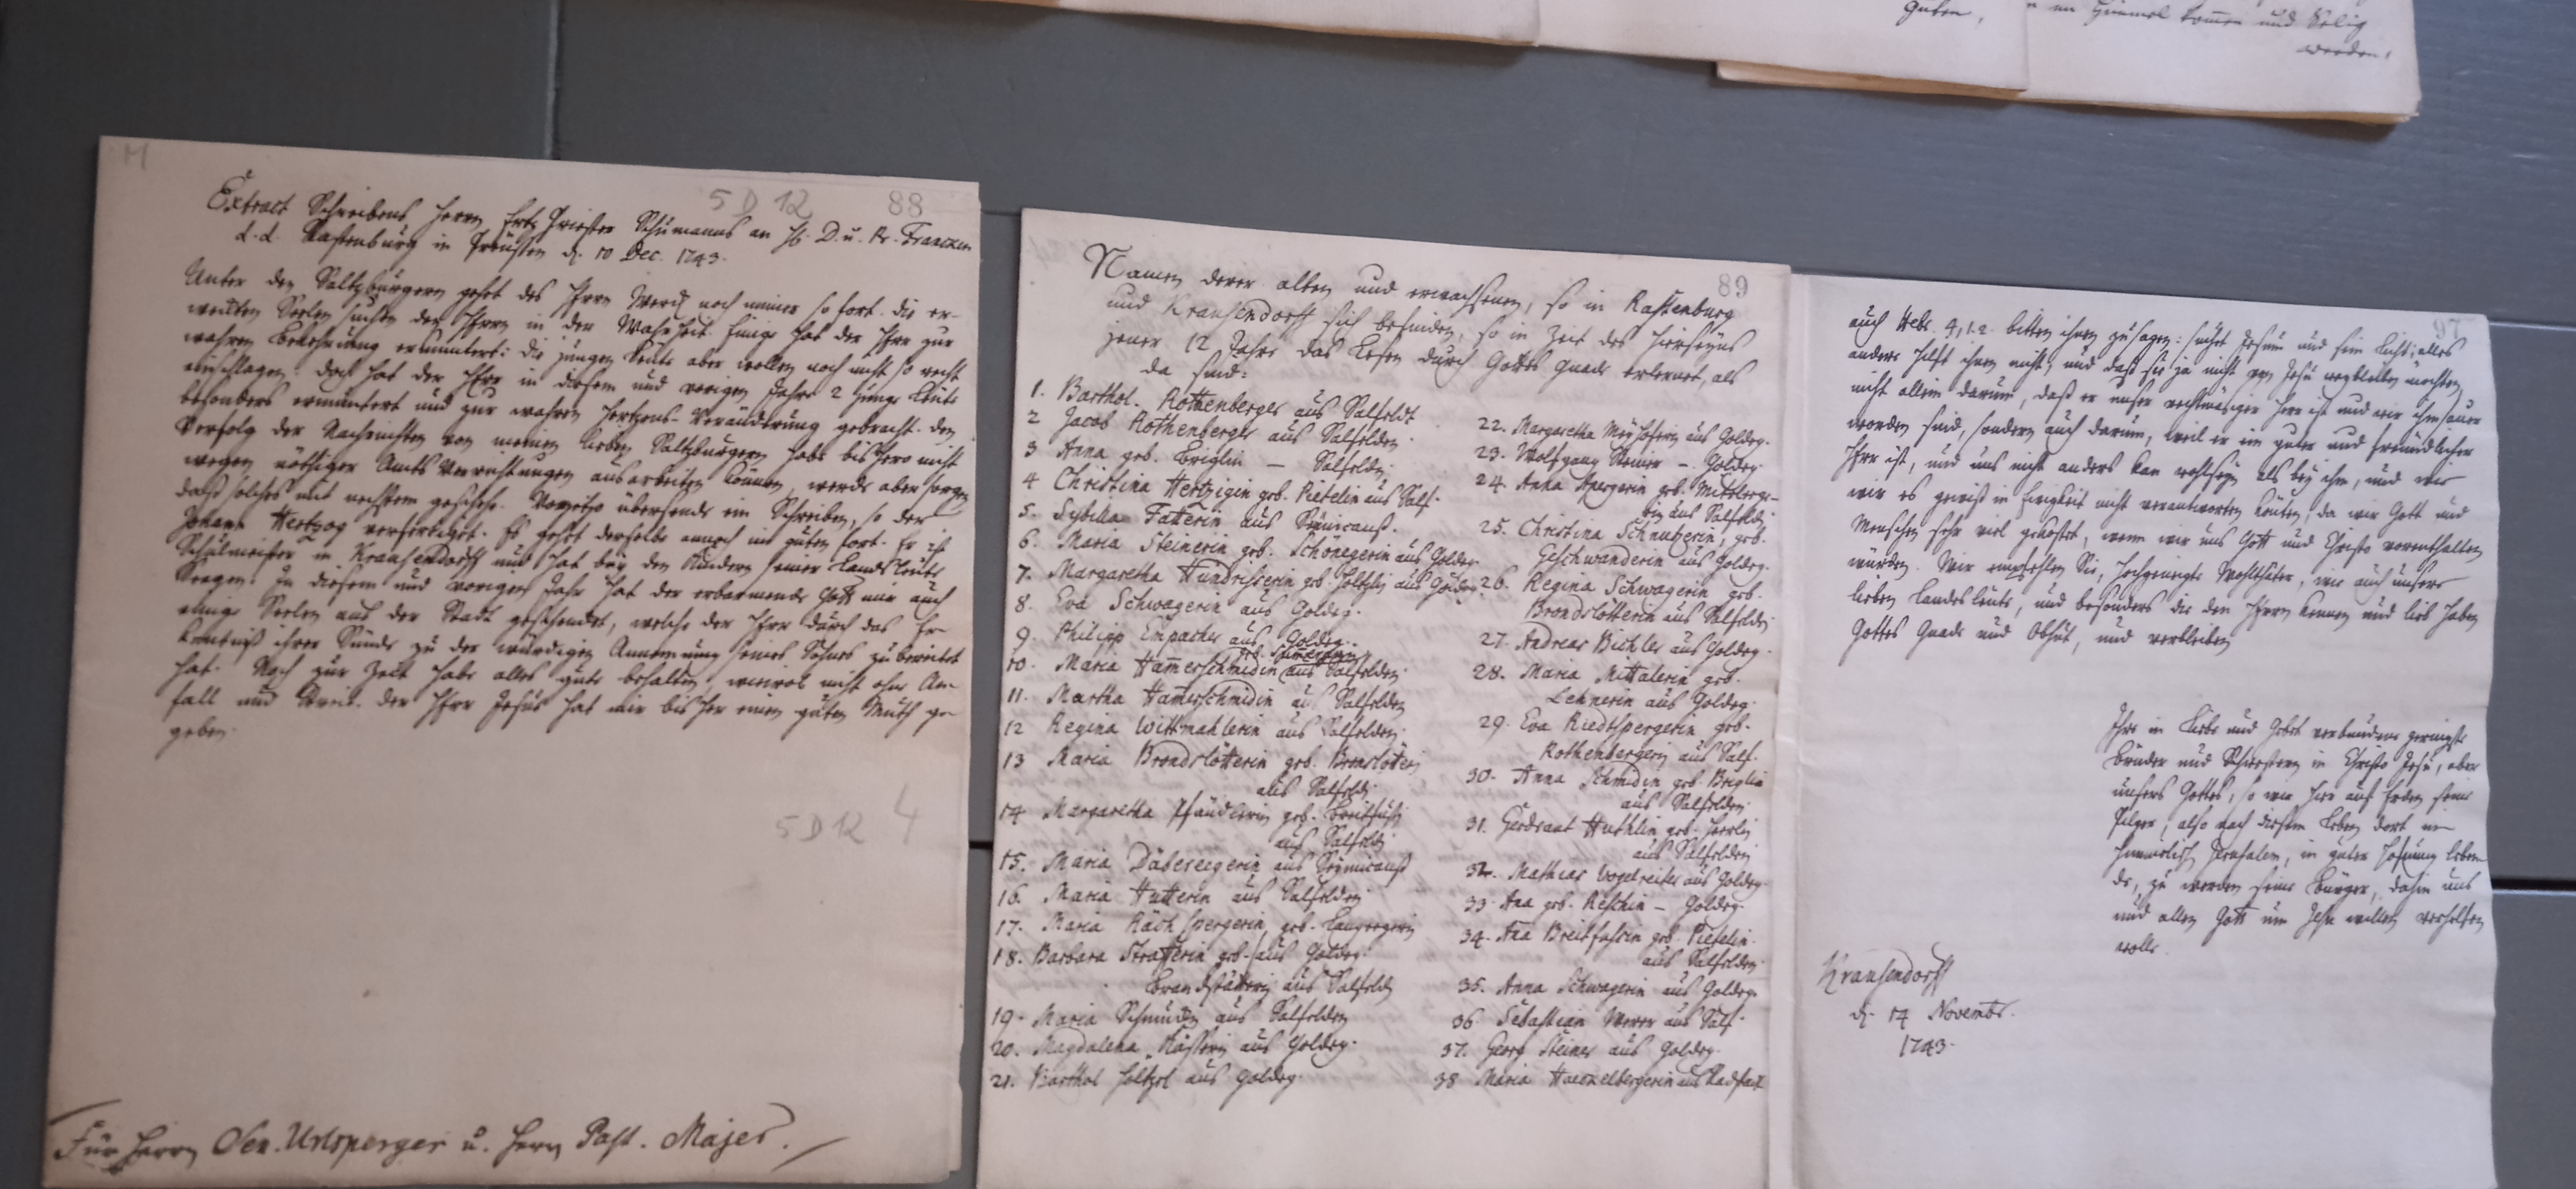 Guten,
im Himmel kommen und Selig
werden,
M
5 D 12
88
Extract Schreibens Herrn Ertz Priester Schumanns an H. D. u. Pr. Francken
d. d. Rastenburg in Preussen d. 10 Dec. 1743.
Unter den Saltzburgern gehet des Herrn Werck noch immer so fort. die er-
weckten Seelen suchen den Herrn in der Wahrheit. Einige hat der Herr zur
wahren Bekehrung ermuntert: die jungen Leute aber wollen noch nicht so recht
einschlagen. doch hat der Herr in diesem und vorigen Jahre 2 junge Leute
besonders ermuntert und zur wahren Hertzens-Veränderung gebracht. den
Verfolg der Nachrichten von meinen lieben Saltzburgern habe bishero nicht
wegen nöthiger Amts Verrichtungen ausarbeiten können, werde aber sorgen
daß solches mit nechstem geschehe. übersende ein Schreiben, so der
Johann Hertzog verfertiget. Es gehet derselbe annoch im guten fort. Er ist
Schulmeister in Krausendorff und hat bey den Kindern seiner Landsleute
Seegen. In diesem und vorigen Jahr hat der erbarmende Gott mir auch
einige Seelen aus der Stadt geschencket, welche der Herr durch das Er-
kentniß ihrer Sünde zu der würdigen Annemung seines Sohnes zubereitet
hat. Noch zur Zeit habe alles gute behalten, wiewol nicht ohne An-
fall und Streit. der Herr Jesus hat mir bisher einen guten Muth ge-
geben.
5 D 12 4
Für Herrn Sen. Urlsperger u. Herrn Past. Majer.
89
Namen derer alten und erwachsenen, so in Rastenburg
und Krausendorff sich befinden, so in Zeit des Hierseyns
jener 12 Jahre das Lesen durch Gottes Gnade erlernet, als
da sind:
1. Barthol. Rothenberger aus Salfeldt
2 Jacob Rothenberger aus Salfelden.
3 Anna geb. Briglin — Salfelden
4 Christina Hertzigin geb. Pietelin aus Salf.
5. Sybilla Fatterin aus
6. Maria Steinerin geb. Schönegerin aus Goldeg.
7. Margaretha Hundriserin geb. Holtzlin aus Goldeg.
8. Eva Schwagerin aus Goldeg.
9. Philipp Empacher aus Goldeg.
10. Maria Hamerschmidin aus Salfelden.
11. Martha Hamerschmidin aus Salfelden
12 Regina Wittmahlerin aus Salfelden.
13 Maria Brondslötterin geb.
aus Salfeld.
14 Margaretha Pfändlerin geb. Breitfuß
aus Salfeld
15. Maria Däbereegerin aus
16. Maria Hutterin aus Salfelden
17. Maria Räthspergerin, geb.
aus Goldeg.
18. Barbara Strasserin geb.
Brandstätterin aus Salfelden
19. Maria Schmiden aus Salfelden
20. Magdalena Kösserin aus Goldeg.
21. Barthol Holtzel aus Goldeg.
22. Margaretha Meyhoferin aus Goldeg.
23. Wolfgang Steiner — Goldeg.
24. Anna Spergerin geb. Mitterberge-
rin aus Salfeld.
25. Christina Schnutzerin, geb.
Geschwanderin aus Goldeg.
26. Regina Schwagerin geb.
Brondslotterin aus Salfelden
27. Andreas Bichler aus Goldeg.
28. Maria Mittalerin geb.
Lehnerin aus Goldeg.
29. Eva Riedtspergerin geb.
Rothenbergerin aus Salf.
30. Anna Schmidin geb. Briglin
aus Salfelden.
31. Gerdraut Huthlin geb. Herrlin
aus Salfelden
32. Mathias Vogelreiter aus Goldeg.
33. Ana geb. Reschin — Goldeg.
34. Ana Breitfussin geb. Pietelin
aus Salfelden.
35. Anna Schwagerin aus Goldeg.
36. Sebastian Werer aus Salf.
37. Georg Steiner aus Goldeg.
38 Maria Haeckelbergerin aus Radstadt
97
auch Hebr. 4, 1.2. bitten ihnen zu sagen: suchet Jesum und sein Licht; alles
andre hilft ihnen nicht, und daß sie ja nicht von Jesu wegbleiben möchten,
nicht allein darum, daß er unser rechtmäsiger Herr ist und wir ihm sauer
worden sind, sondern auch darum, weil er ein guter und freundlicher
Herr ist, und uns nicht anders kan wohlseyn als bey ihm, und wir
wir es gewiß in Ewigkeit nicht verantworten könten, da wir Gott und
Menschen sehr viel gekostet, wenn wir uns Gott und Christo vorenthalten
würden. Wir empfehlen Sie, Hochgeneigte Wohlthäter, wie auch unsere
lieben Landesleute, und besonders die den Herrn kennen und lieb haben
Gottes Gnade und Obhut, und verbleiben
Ihre in Liebe und Gebet verbundene geringste
Brüder und Schwestern in Christo Jesu, aber
unsers Gottes, so wie hier auf Erden seine
Pilger, also nach diesem Leben dort im
himmlisch Jerusalem, in guter Hofnung leben-
de, zu werden seine Bürger, dahin uns
und allen Gott um Jesu willen verhelfen
wolle.
Krausendorff
d. 14 Novembr.
1743.